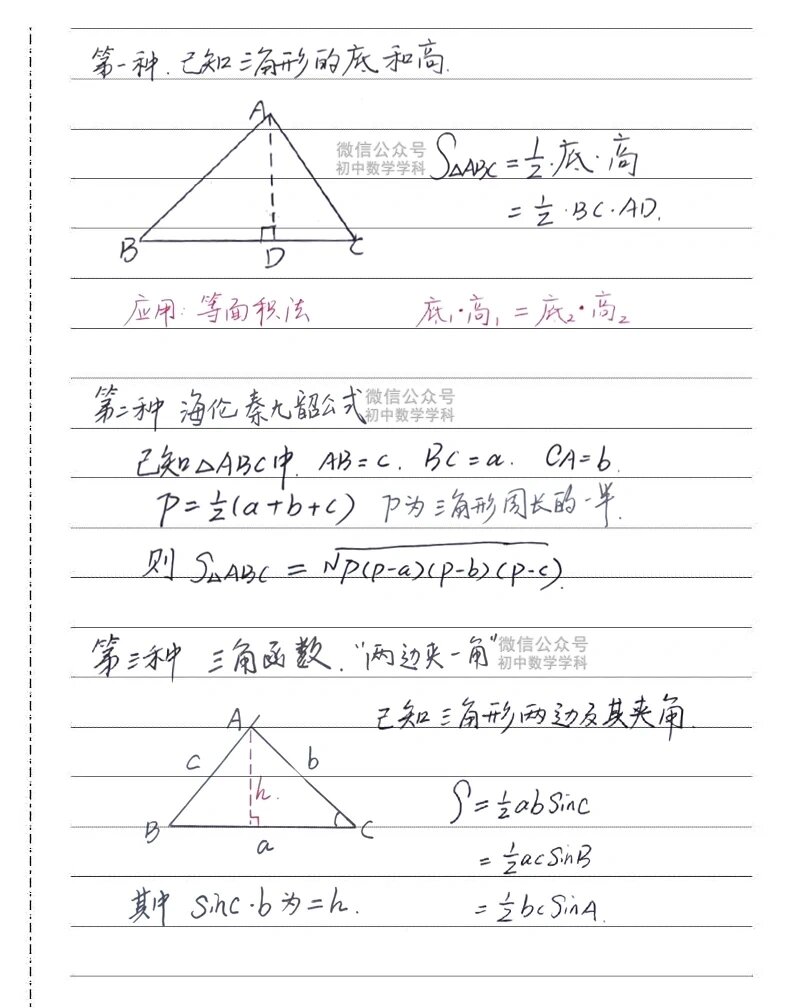 第一种.已知三角形的底和高.
A
微信公众号
初中数学学科
S△ABC = ½·底·高
= ½·BC·AD.
B D C
应用: 等面积法 底₁·高₁ = 底₂·高₂
第二种 海伦秦九韶公式
微信公众号
初中数学学科
已知△ABC中. AB=c. BC=a. CA=b.
P=½(a+b+c) P为三角形周长的一半.
则 S△ABC = √P(P-a)(P-b)(P-c).
第三种 三角函数.“两边夹一角”
微信公众号
初中数学学科
已知三角形两边及其夹角.
A
c b
h.
B a C
S=½abSinC
=½acSinB
=½bcSinA.
其中 SinC·b为=h.